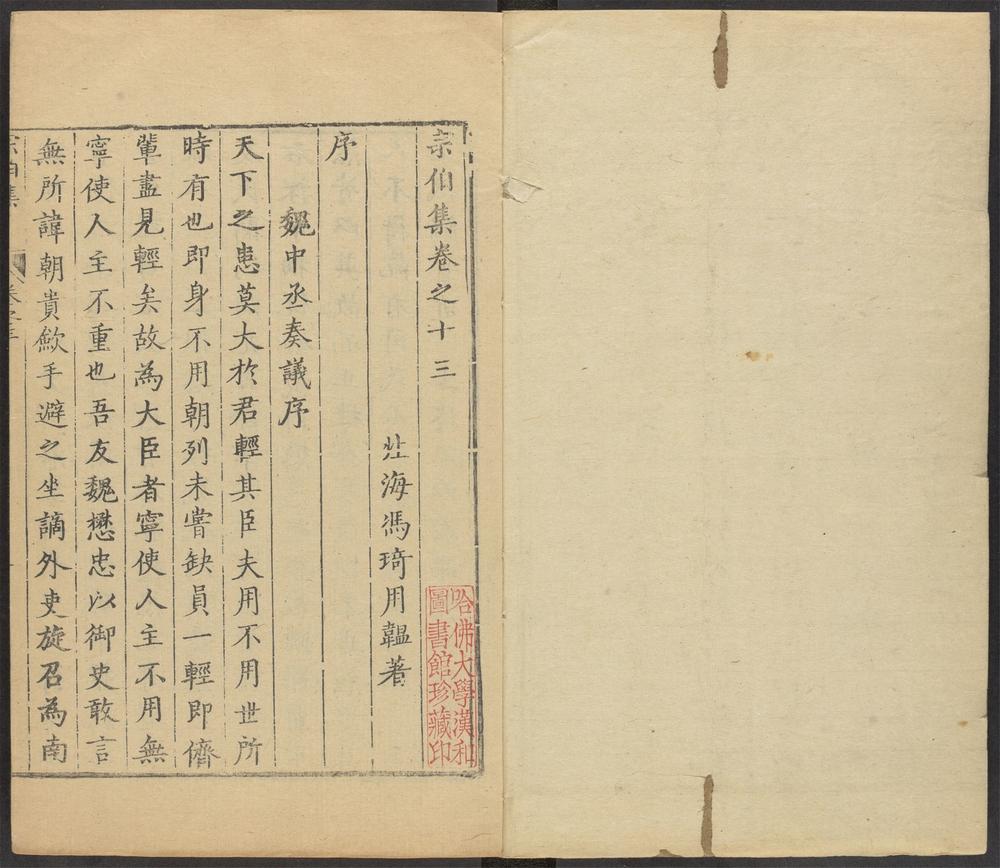 宗伯集卷之十三
北海馮琦用韞著
序
魏中丞奏議序
天下之患莫大於君輕其臣夫用不用世所
時有也即身不用朝列未嘗缺員一輕即儕
輩盡見輕矣故為大臣者寧使人主不用無
寧使人主不重也吾友魏懋忠以御史敢言
無所諱朝貴歛手避之坐謫外吏旋召為南
宗伯集
卷之十三
哈佛大學漢和
圖書館珍藏印